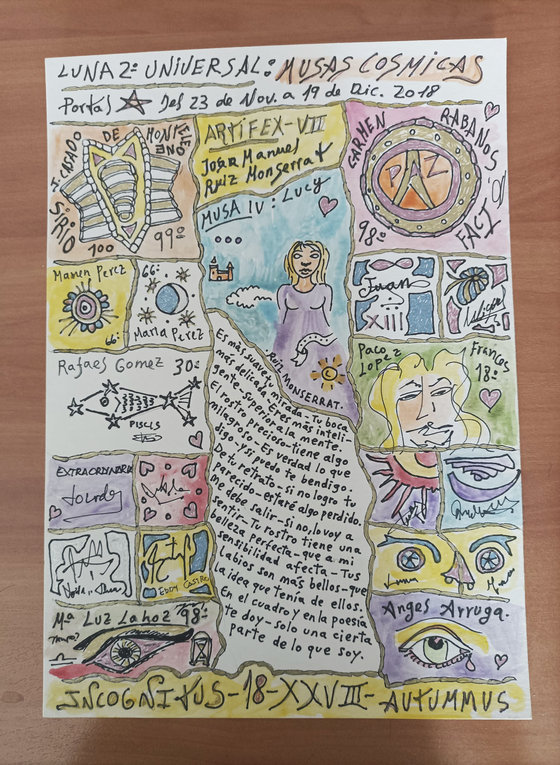 LUNA 2ª UNIVERSAL: MUSAS COSMICAS
Portás Del 23 de Nov. a 19 de Dic. 2018
J. CASADO DE
SIRIO
100 99º
ARTIFEX-VII
Joan Manuel
Ruiz Monserrat
CARMEN RABANOS
PAZ
98º FACI
MUSA IV: Lucy
Mamen Perez
66º
66º
Maria Perez
Juan
XIII
Rafael Gomez 30º
PISCIS
Paco Francos
Lopez 18º
RUIZ MONSERRAT.
Es más suave tu mirada-Tu boca
más delicada-Eres más inteli-
gente-superior a la mente
El rostro precioso-tiene algo
milagroso-Es verdad lo que
digo-Y si puedo te bendigo.
De tu retrato-si no logro tu
parecido-estaré algo perdido.
Me debe salir-si no, lo voy a
sentir-Tu rostro tiene una
belleza perfecta-que a mi
sensibilidad afecta-Tus
labios son más bellos-que
la idea que tenía de ellos.
En el cuadro y en la poesía
te doy-solo una cierta
parte de lo que soy.
EXTRAORDINARIA
Lourdes
EDDY CASTRO
Mª Luz Lahoz 98º
Angel Arruga.
INCOGNITUS-18-XXVIII-AUTUMMUS